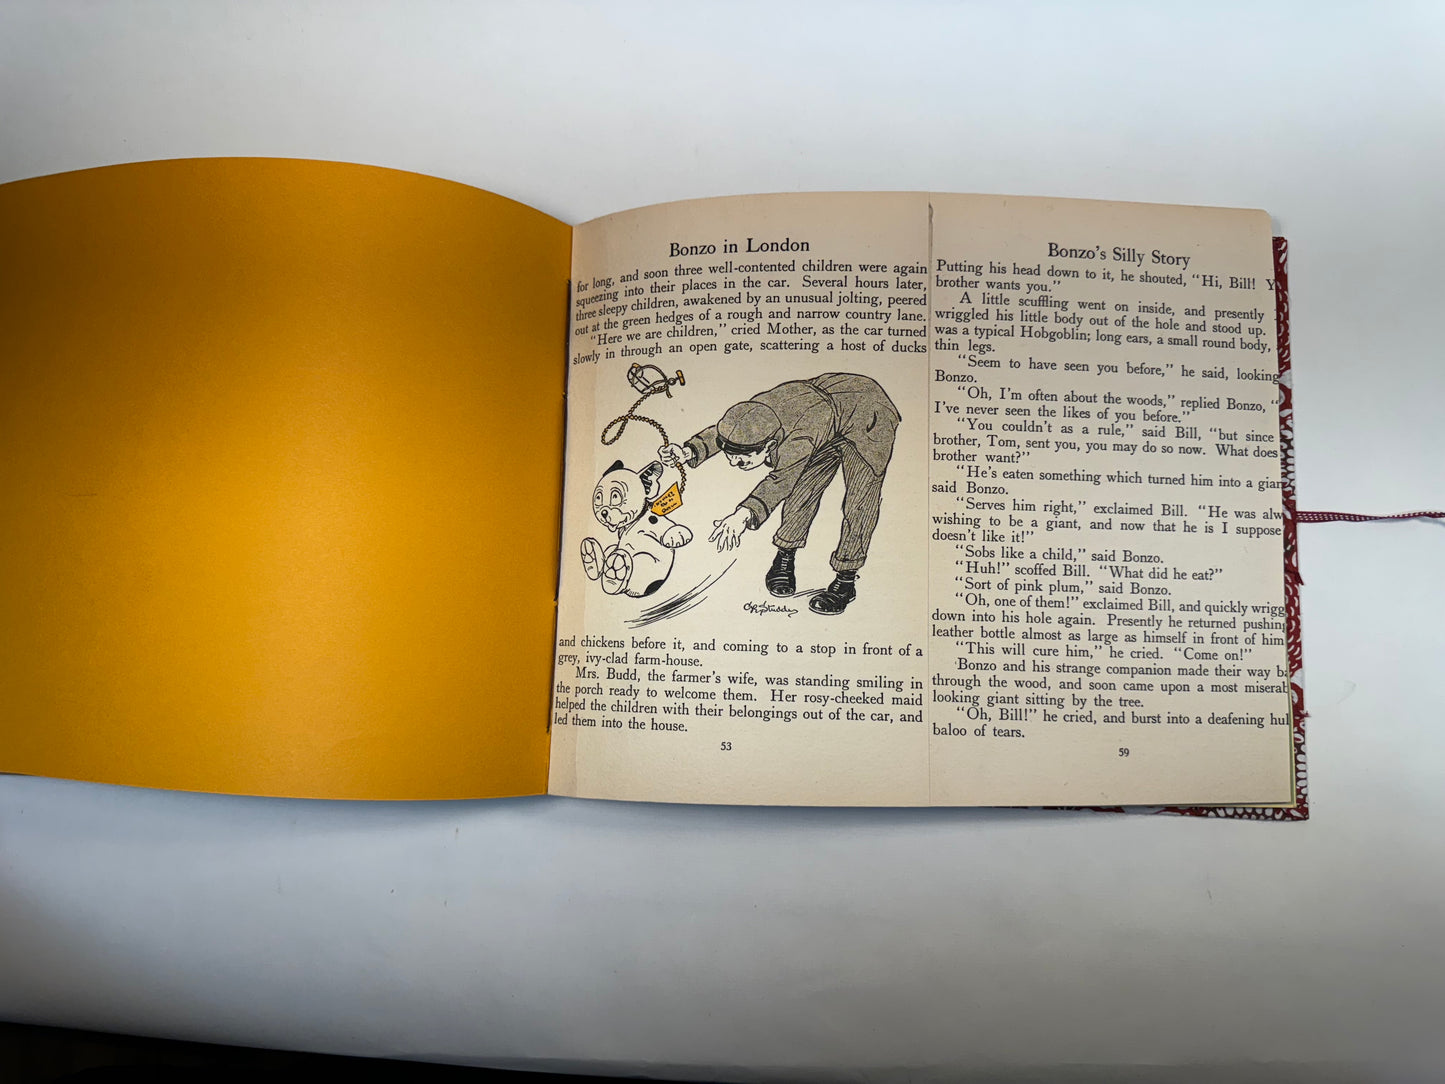 Bonzo in London
for long, and soon three well-contented children were again
squeezing into their places in the car. Several hours later,
three sleepy children, awakened by an unusual jolting, peered
out at the green hedges of a rough and narrow country lane.
"Here we are children," cried Mother, as the car turned
slowly in through an open gate, scattering a host of ducks
and chickens before it, and coming to a stop in front of a
grey, ivy-clad farm-house.
Mrs. Budd, the farmer's wife, was standing smiling in
the porch ready to welcome them. Her rosy-cheeked maid
helped the children with their belongings out of the car, and
led them into the house.
53
Bonzo's Silly Story
Putting his head down to it, he shouted, "Hi, Bill! Y
brother wants you."
A little scuffling went on inside, and presently
wriggled his little body out of the hole and stood up.
was a typical Hobgoblin; long ears, a small round body,
thin legs.
"Seem to have seen you before," he said, looking
Bonzo.
"Oh, I'm often about the woods," replied Bonzo, "
I've never seen the likes of you before."
"You couldn't as a rule," said Bill, "but since
brother, Tom, sent you, you may do so now. What does
brother want?"
"He's eaten something which turned him into a gian
said Bonzo.
"Serves him right," exclaimed Bill. "He was alw
wishing to be a giant, and now that he is I suppose
doesn't like it!"
"Sobs like a child," said Bonzo.
"Huh!" scoffed Bill. "What did he eat?"
"Sort of pink plum," said Bonzo.
"Oh, one of them!" exclaimed Bill, and quickly wrigg
down into his hole again. Presently he returned pushin
leather bottle almost as large as himself in front of him
"This will cure him," he cried. "Come on!"
Bonzo and his strange companion made their way b
through the wood, and soon came upon a most miserab
looking giant sitting by the tree.
"Oh, Bill!" he cried, and burst into a deafening hul
baloo of tears.
59